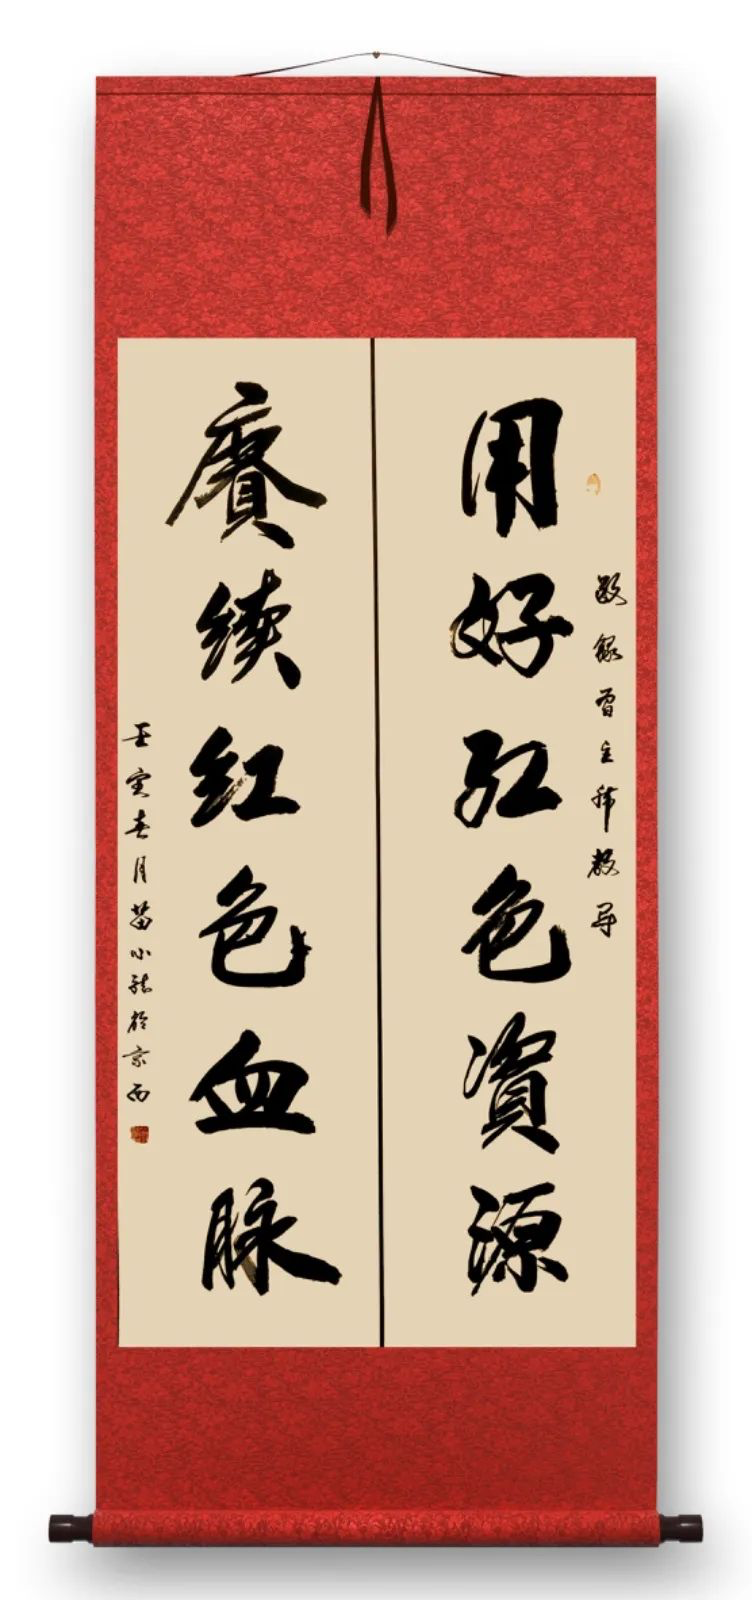 敬録習主席教导
用好红色資源
賡续红色血脉
壬寅春月苗小於京西